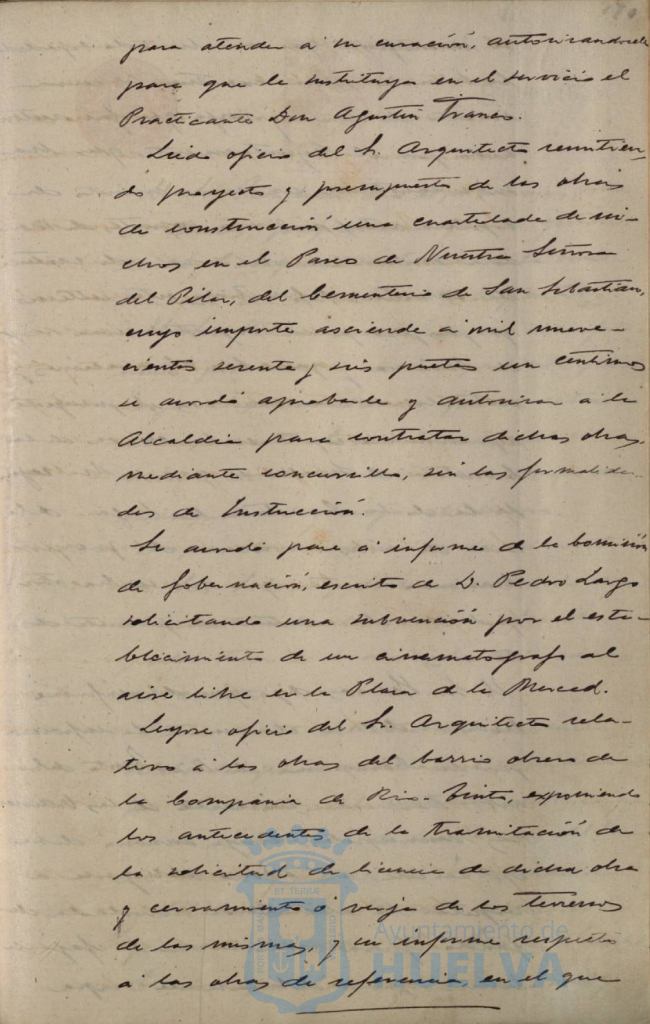 para atender á su curación, autorizandosele
para que le sustituya en el servicio el
Practicante Don Agustin Franco.
Leido oficio del Sr. Arquitecto remitien-
do proyecto y presupuesto de las obras
de construcción una cuartelada de ni-
chos en el Paseo de Nuestra Señora
del Pilar, del Cementerio de San Sebastian,
cuyo importe asciende á mil nueve-
cientas sesenta y seis pesetas un centimos
se acordó aprobarle y autorizar á la
Alcaldia para contratar dichas obras
mediante concursillo, sin las formalida-
des de Instrucción.
Se acordó pase á informe de la Comisión
de Gobernación, escrito de D. Pedro Largo
solicitando una subvención por el esta-
blecimiento de un cinematografo al
aire libre en la Plaza de la Merced.
Leyose oficio del Sr. Arquitecto rela-
tivo á las obras del barrio obrero de
la Compañia de Rio-Tinto, exponiendo
los antecedentes de la tramitación de
la solicitud de licencia de dicha obra
y cerramiento ó verja de los terrenos
de las mismas, y su informe respecto
á las obras de referencia, en el que
Ayuntamiento de
HUELVA